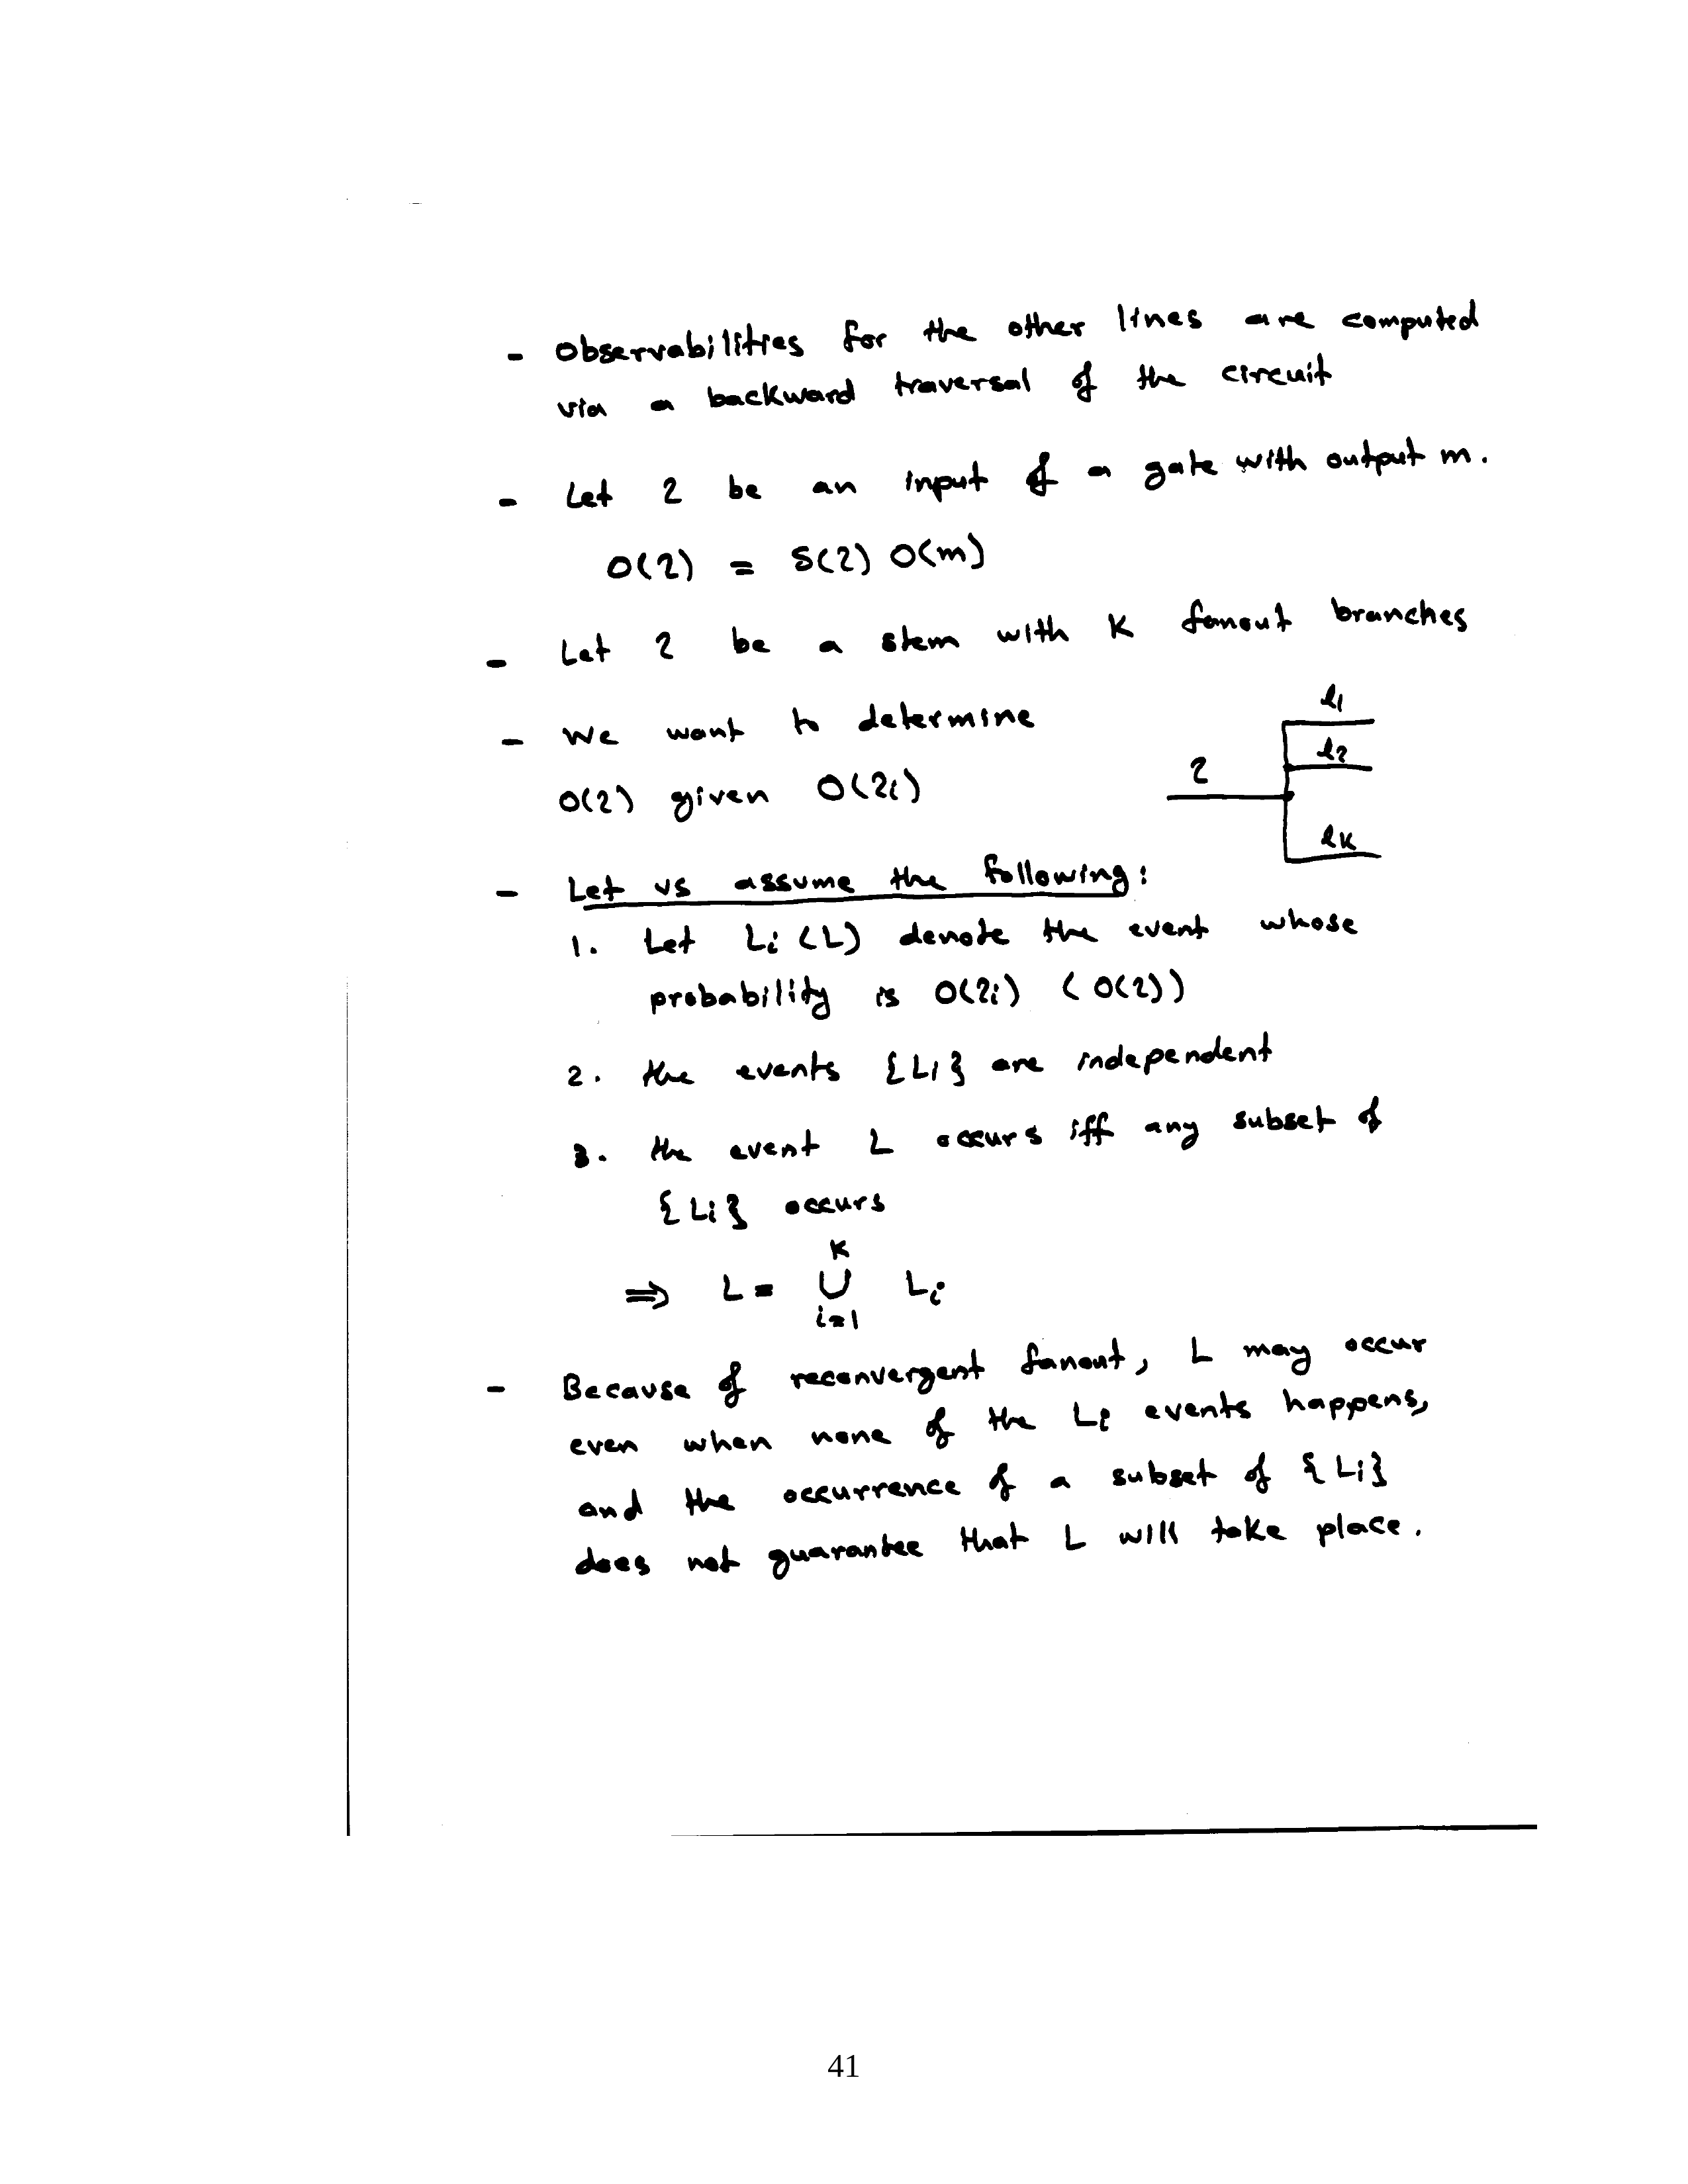 - Observabilities for the other lines are computed
via a backward traversal of the circuit
- Let l be an input of a gate with output m.
O(l) = S(l) O(m)
- Let l be a stem with K fanout branches
- We want to determine
O(l) given O(li)
l
l1
l2
lK
- Let us assume the following:
1. Let Li (L) denote the event whose
probability is O(li) (O(l))
2. the events {Li} are independent
3. the event L occurs iff any subset of
{Li} occurs
K
⇒ L = ∪ Li
i=1
- Because of reconvergent fanout, L may occur
even when none of the Li events happens,
and the occurrence of a subset of {Li}
does not guarantee that L will take place.
41